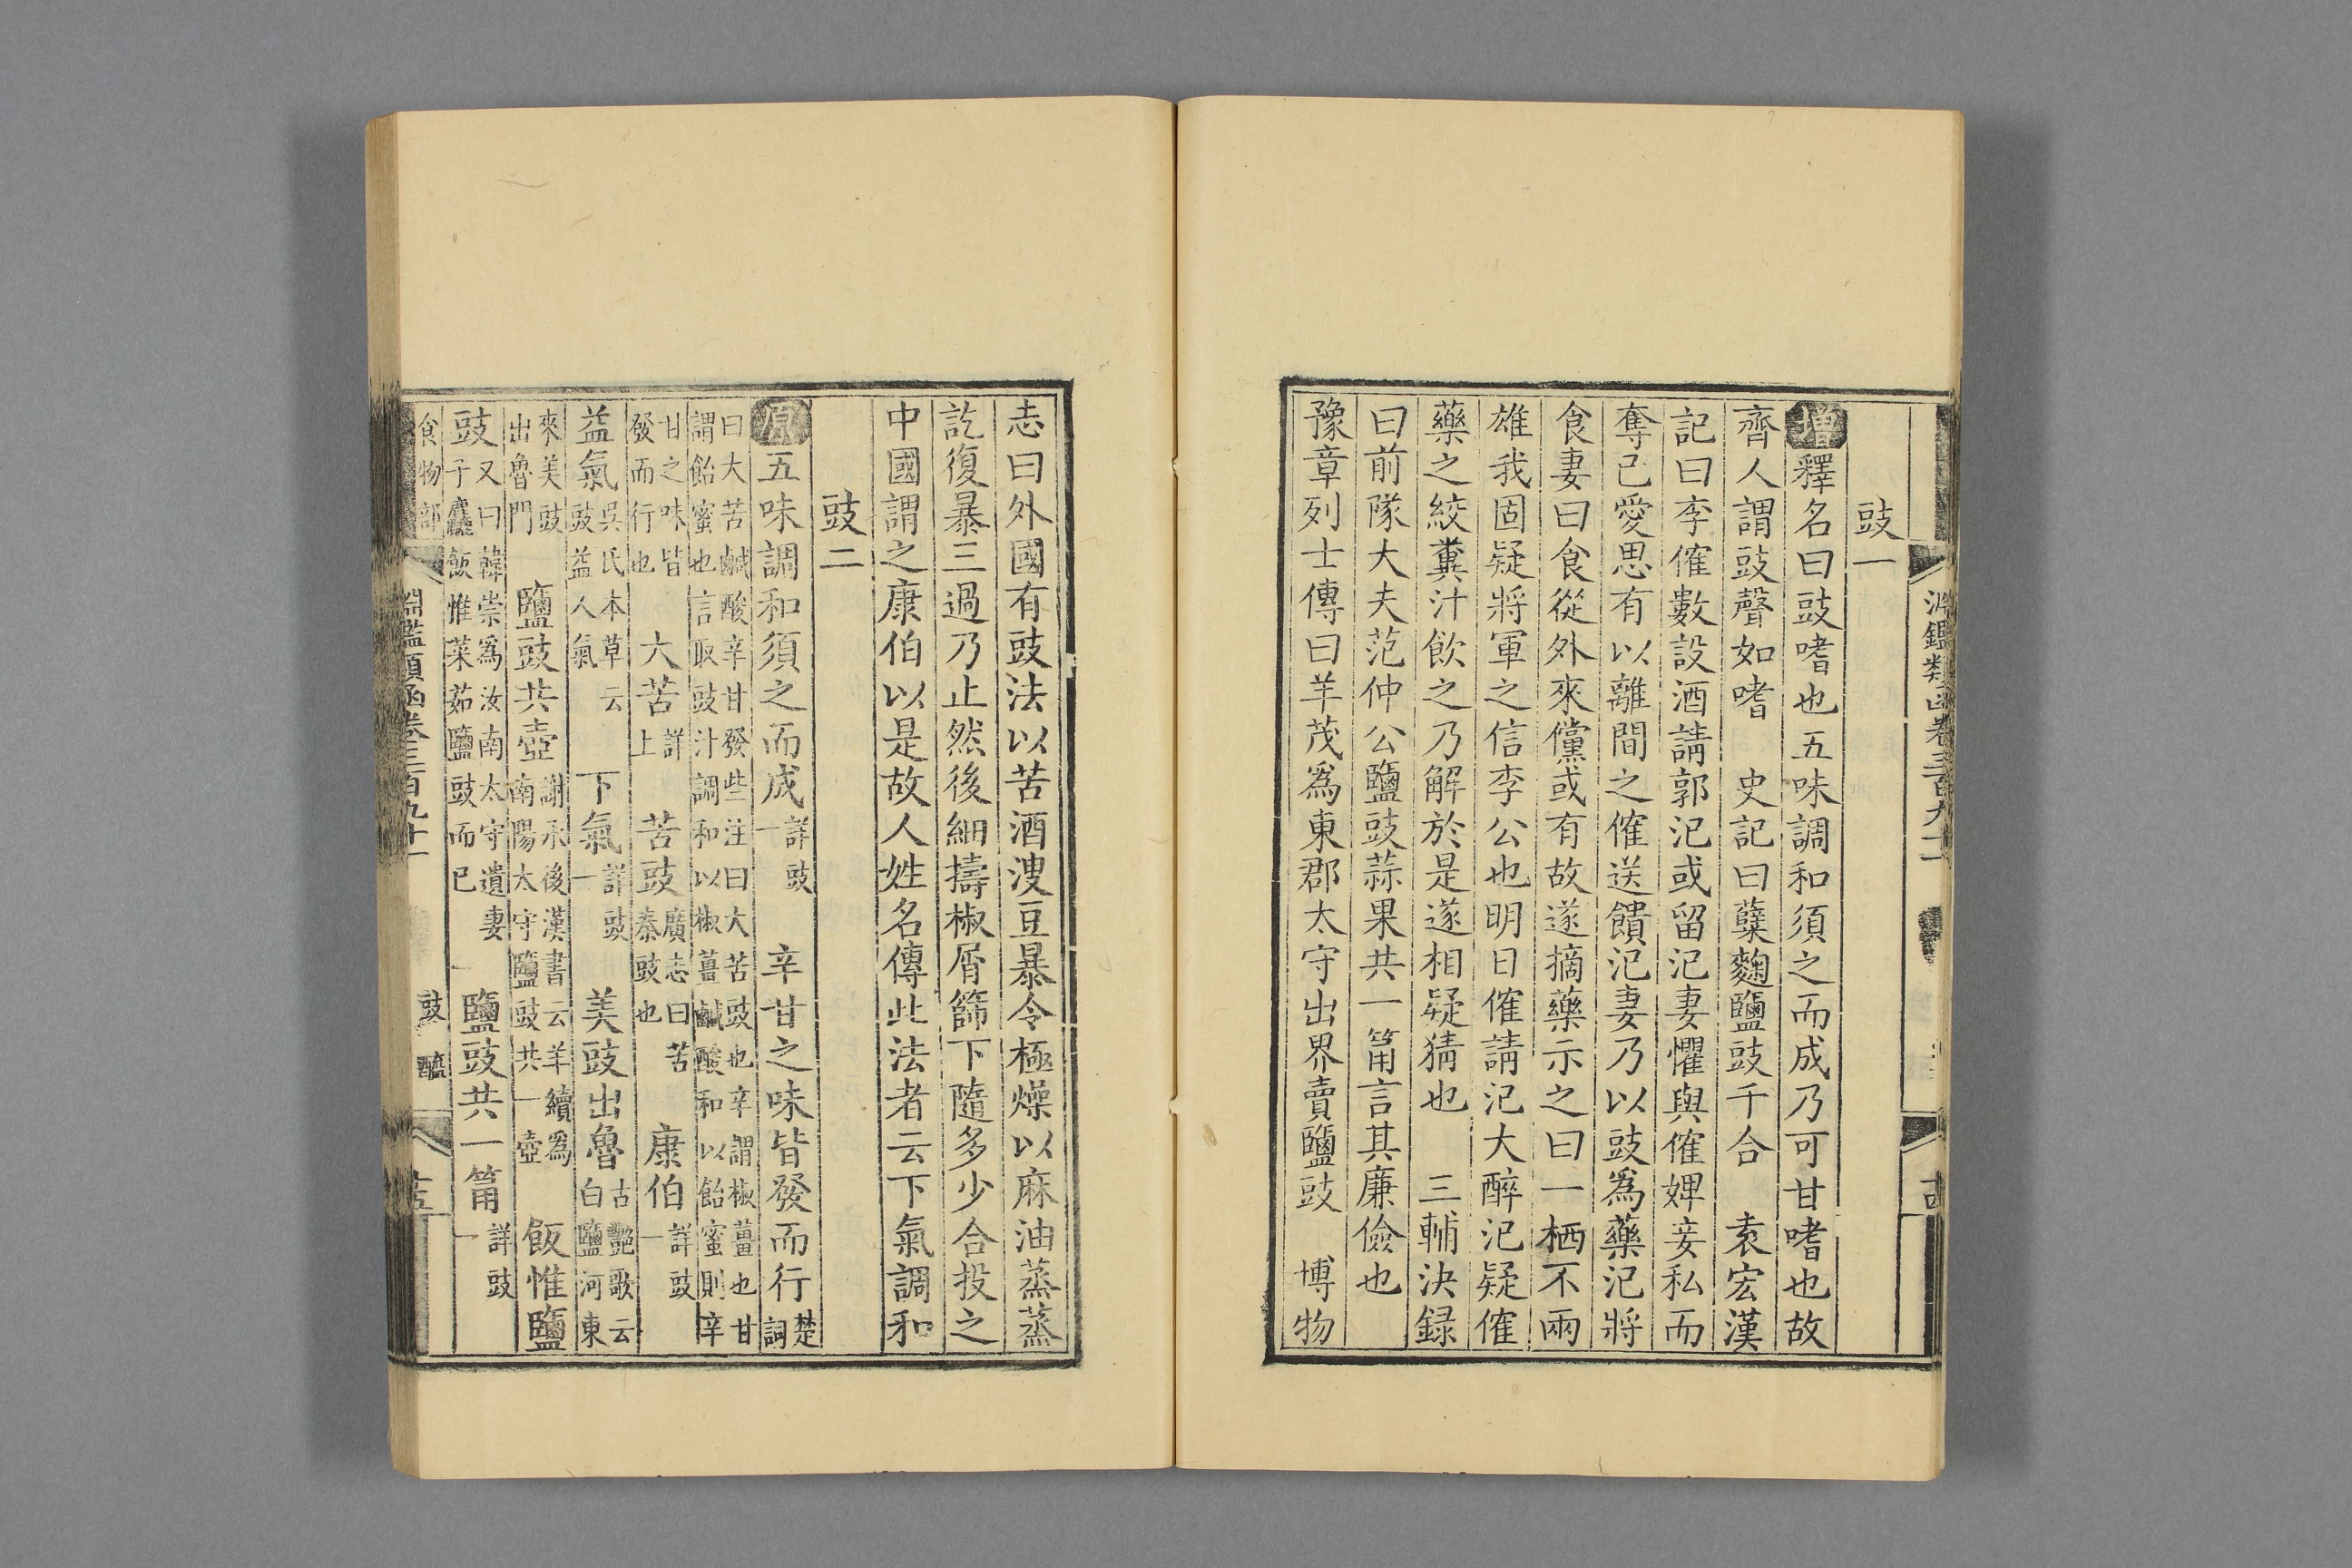 豉一
增釋名曰豉嗜也五味調和須之而成乃可甘嗜也故
齊人謂豉聲如嗜　史記曰糵麴鹽豉千合　袁宏漢
記曰李傕數設酒請郭汜或留汜妻懼與傕婢妾私而
奪已愛思有以離間之傕送饋汜妻乃以豉爲藥汜將
食妻曰食從外來儻或有故遂摘藥示之曰一栖不兩
雄我固疑將軍之信李公也明日傕請汜大醉汜疑傕
藥之絞糞汁飲之乃解於是遂相疑猜也　三輔決録
曰前隊大夫范仲公鹽豉蒜果共一筩言其廉儉也
豫章列士傳曰羊茂爲東郡太守出界賣鹽豉　博物
志曰外國有豉法以苦酒溲豆暴令極燥以麻油蒸蒸
訖復暴三過乃止然後細擣椒屑篩下隨多少合投之
中國謂之康伯以是故人姓名傳此法者云下氣調和
豉二
原五味調和須之而成詳豉一　辛甘之味皆發而行楚詞
曰大苦鹹酸辛甘發些注曰大苦豉也辛謂椒薑也甘
謂飴蜜也言取豉汁調和以椒薑鹹酸和以飴蜜則辛
甘之味皆發而行也　大苦詳上　苦豉廣志曰苦秦豉也　康伯詳豉一
益氣吳氏本草云豉益人氣　下氣詳豉一　美豉出魯古豔歌云白鹽河東
來美豉出魯門　鹽豉共壺謝承後漢書云羊續爲南陽太守鹽豉共一壺　飯惟鹽
豉又曰韓崇爲汝南太守遺妻子麤飯惟菜茹鹽豉而已　鹽豉共一筩詳豉一
食物部
淵鑑類函卷三百九十一
豉　醯